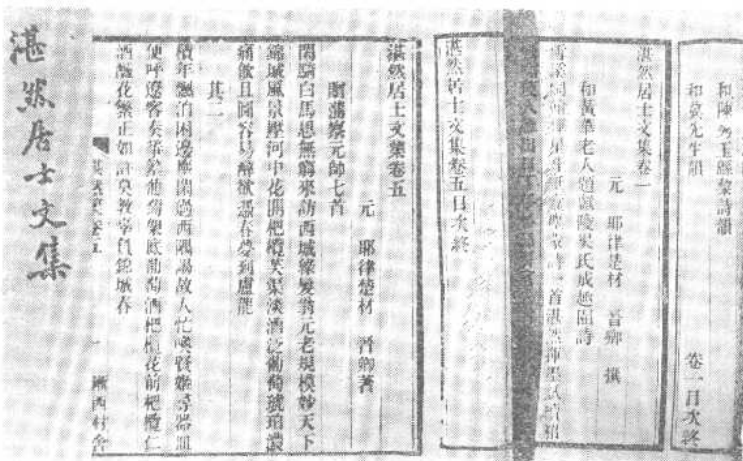 和陳秀玉詩韻
和先生韻
卷一目次終
湛然居士文集卷一
元 耶律楚材 晉卿 撰
和黃華老人題獻陵吳氏成趣園詩
湛然居士文集卷五目次終
湛然居士文集卷五
元 耶律楚材 晉卿著
贈蒲察元帥七首
閑騎白馬思無窮來訪西城綠髮翁元老規模妙天下
錦城風景壓河中花開杷欖芙蕖淡酒泛葡萄琥珀濃
痛飲且圖容易醉欲憑春夢到盧龍
其二
積年飄泊困邊塵閑過西隅謁故人忙喚賢姬尋器皿
便呼遼客奏箏葡萄架底葡萄酒杷欖花前杷欖仁
酒釅花繁正如許莫教辜負錦城春
湛然集卷五 一 漸西村舍
湛然居士文集